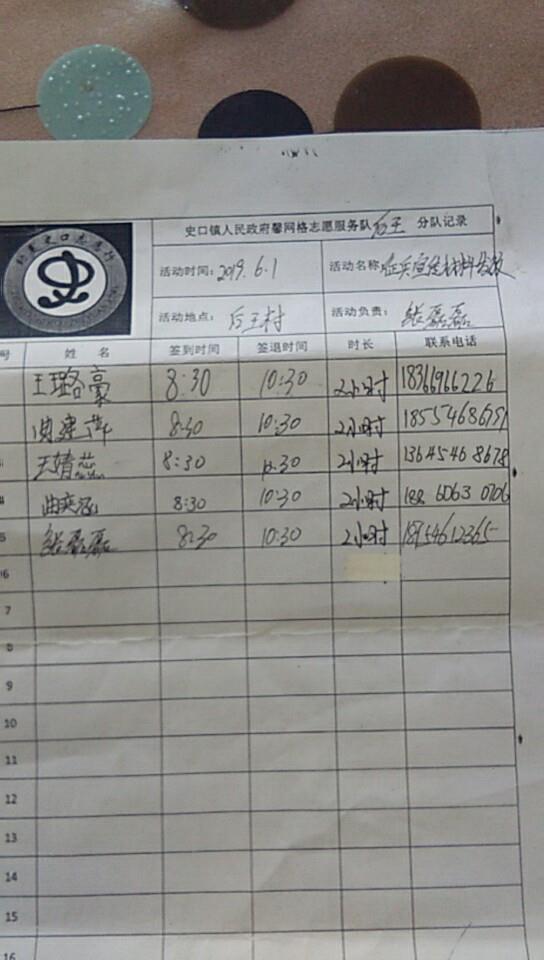 史口镇人民政府馨网格志愿服务队后王 分队记录
活动时间:2019.6.1 活动名称
活动地点: 后王村 活动负责: 张磊磊
号 姓 名 签到时间 签退时间 时长 联系电话
王璐豪 8:30 10:30 2小时 18366966226
8:30 10:30 2小时
王婧蕊 8:30 10:30 2小时 13645468678
曲奕 8:30 10:30 2小时 188 6063 0706
5 张磊磊 8:30 10:30 2小时
6
7
8
9
10
11
12
13
14
15
16